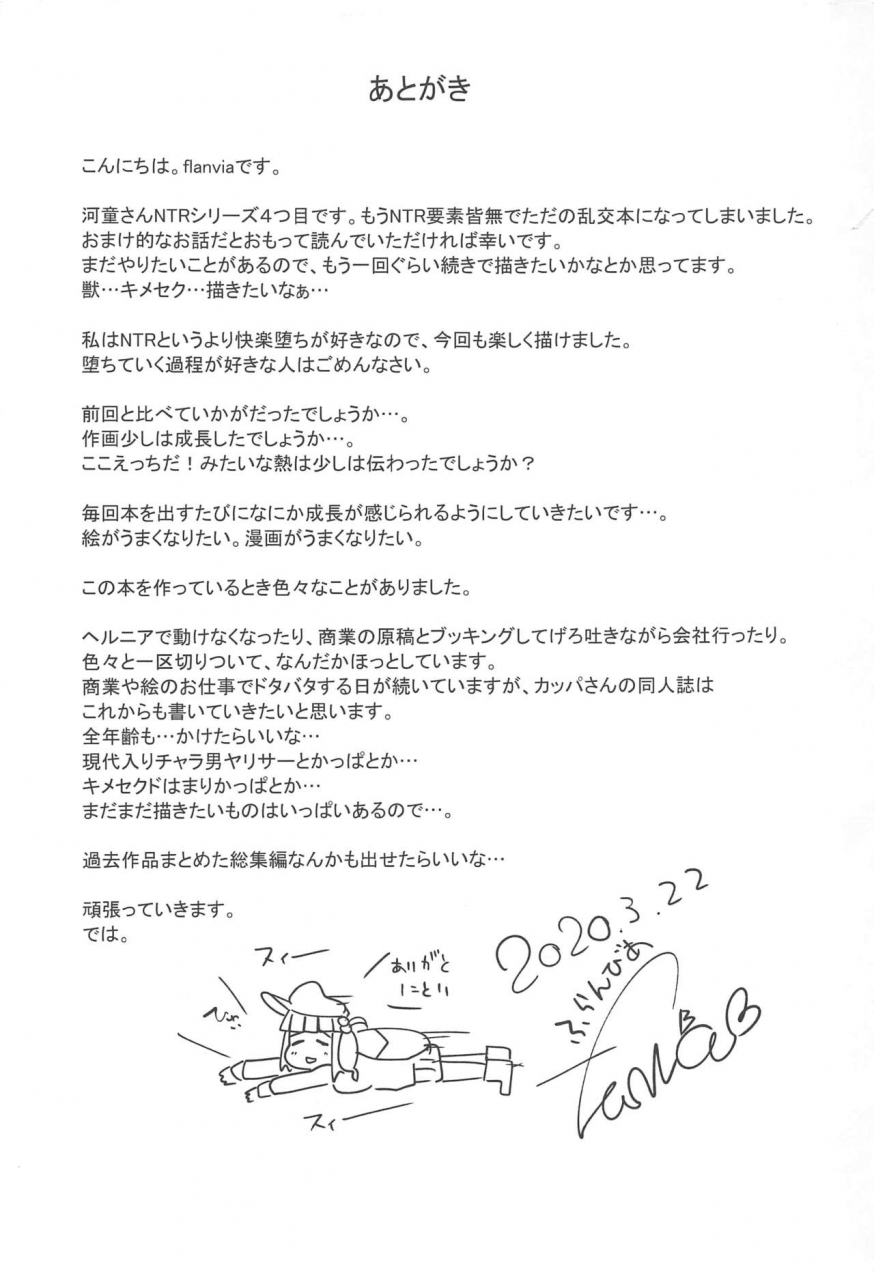 あとがき
こんにちは。flanviaです。
河童さんNTRシリーズ4つ目です。もうNTR要素皆無でただの乱交本になってしまいました。
おまけ的なお話だとおもって読んでいただければ幸いです。
まだやりたいことがあるので、もう一回ぐらい続きで描きたいかなとか思ってます。
獣…キメセク…描きたいなぁ…
私はNTRというより快楽堕ちが好きなので、今回も楽しく描けました。
堕ちていく過程が好きな人はごめんなさい。
前回と比べていかがだったでしょうか…。
作画少しは成長したでしょうか…。
ここえっちだ！みたいな熱は少しは伝わったでしょうか？
毎回本を出すたびになにか成長が感じられるようにしていきたいです…。
絵がうまくなりたい。漫画がうまくなりたい。
この本を作っているとき色々なことがありました。
ヘルニアで動けなくなったり、商業の原稿とブッキングしてげろ吐きながら会社行ったり。
色々と一区切りついて、なんだかほっとしています。
商業や絵のお仕事でドタバタする日が続いていますが、カッパさんの同人誌は
これからも書いていきたいと思います。
全年齢も…かけたらいいな…
現代入りチャラ男ヤリサーとかっぱとか…
キメセクドはまりかっぱとか…
まだまだ描きたいものはいっぱいあるので…。
過去作品まとめた総集編なんかも出せたらいいな…
頑張っていきます。
では。
スィー
ありがと
にとり
スィー
2020.3.22
ふらんびあ